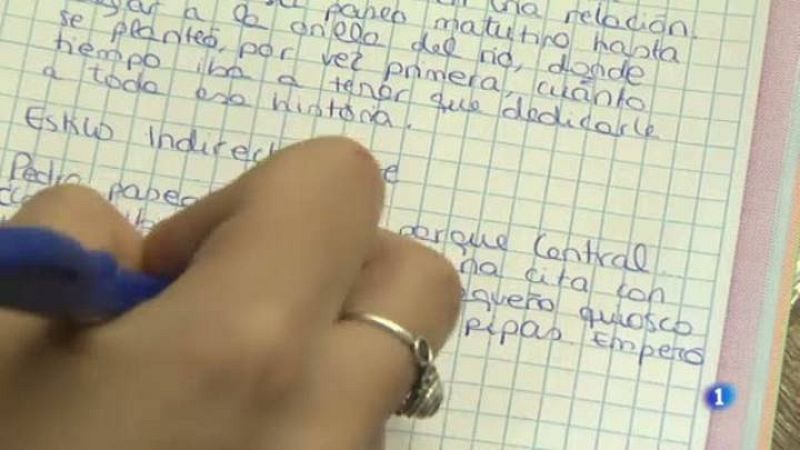 una relación.
paseo matutino hasta
a la orilla del río, donde
se planteó, por vez primera, cuánto
tiempo iba a tener que dedicarle
a toda esa historia.
Estilo indirect
Pedro pasea
parque Central
na cita con
queño quiosco
pipas. Empezó
1